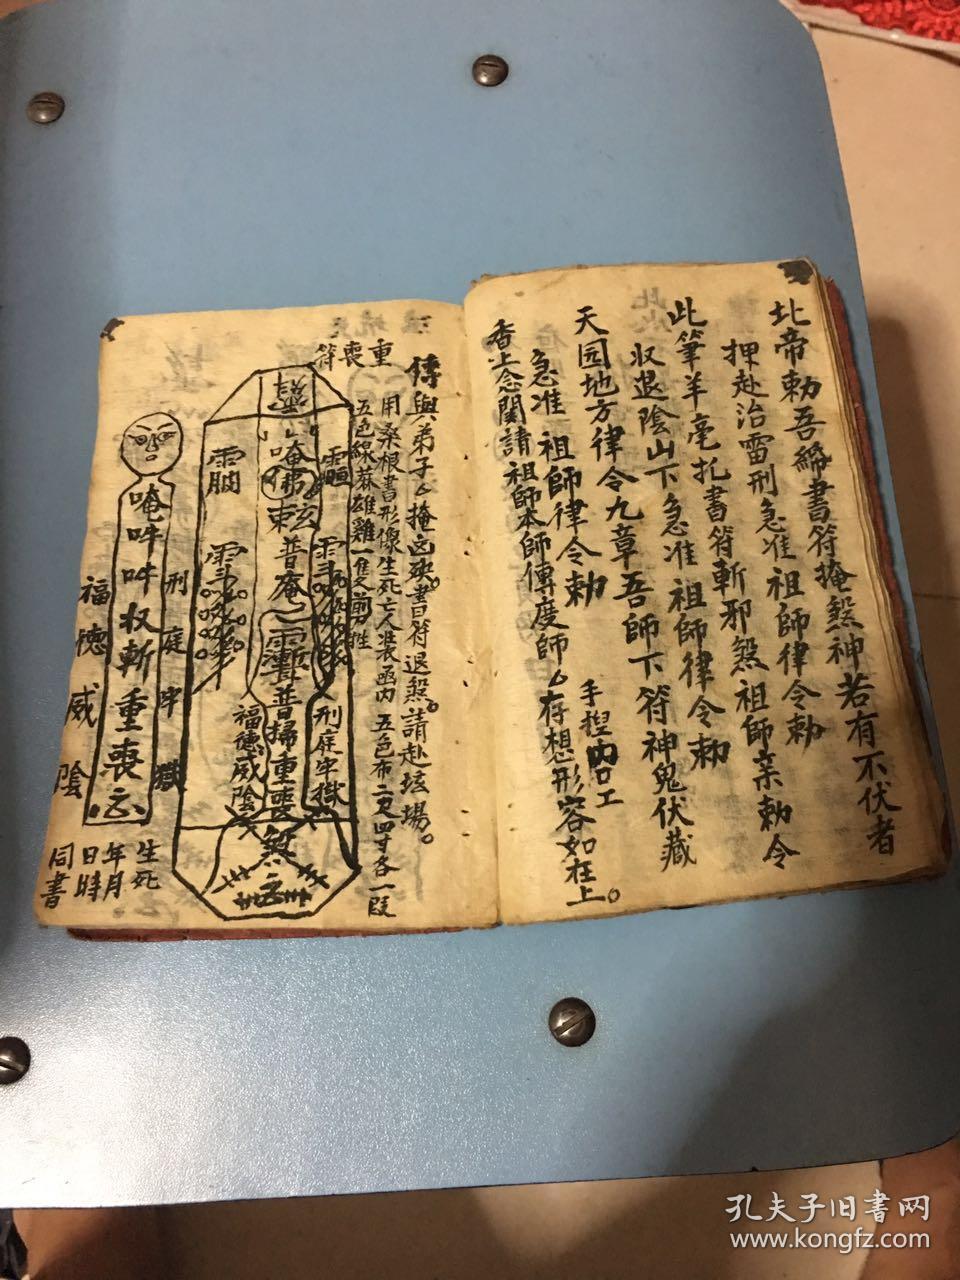 北帝勅吾締書符掩煞神若有不伏者
押赴治雷刑急准祖師律令勅
此筆羊毫扎書符斬邪煞祖師亲勅令
収退陰山下急准祖師律令勅
天园地方律令九章吾師下符神鬼伏藏
急准祖師律令勅
手揑
香上念関請祖師本師傳度師么存想形容如在上。
傳與弟子么掩凶
書符退煞。請赴坟場。
用桑根書形像生死亡人裝函内
五色布二尺四寸各一段
五色線蔴雄雞一隻
重喪符
唵佛
普庵
普掃重喪煞
刑庭牢獄
福德威陰
唵吽吽収斬重喪
刑庭牢獄
福徳威陰
生死
年月
日時
同書
孔夫子旧书网
www.kongfz.com